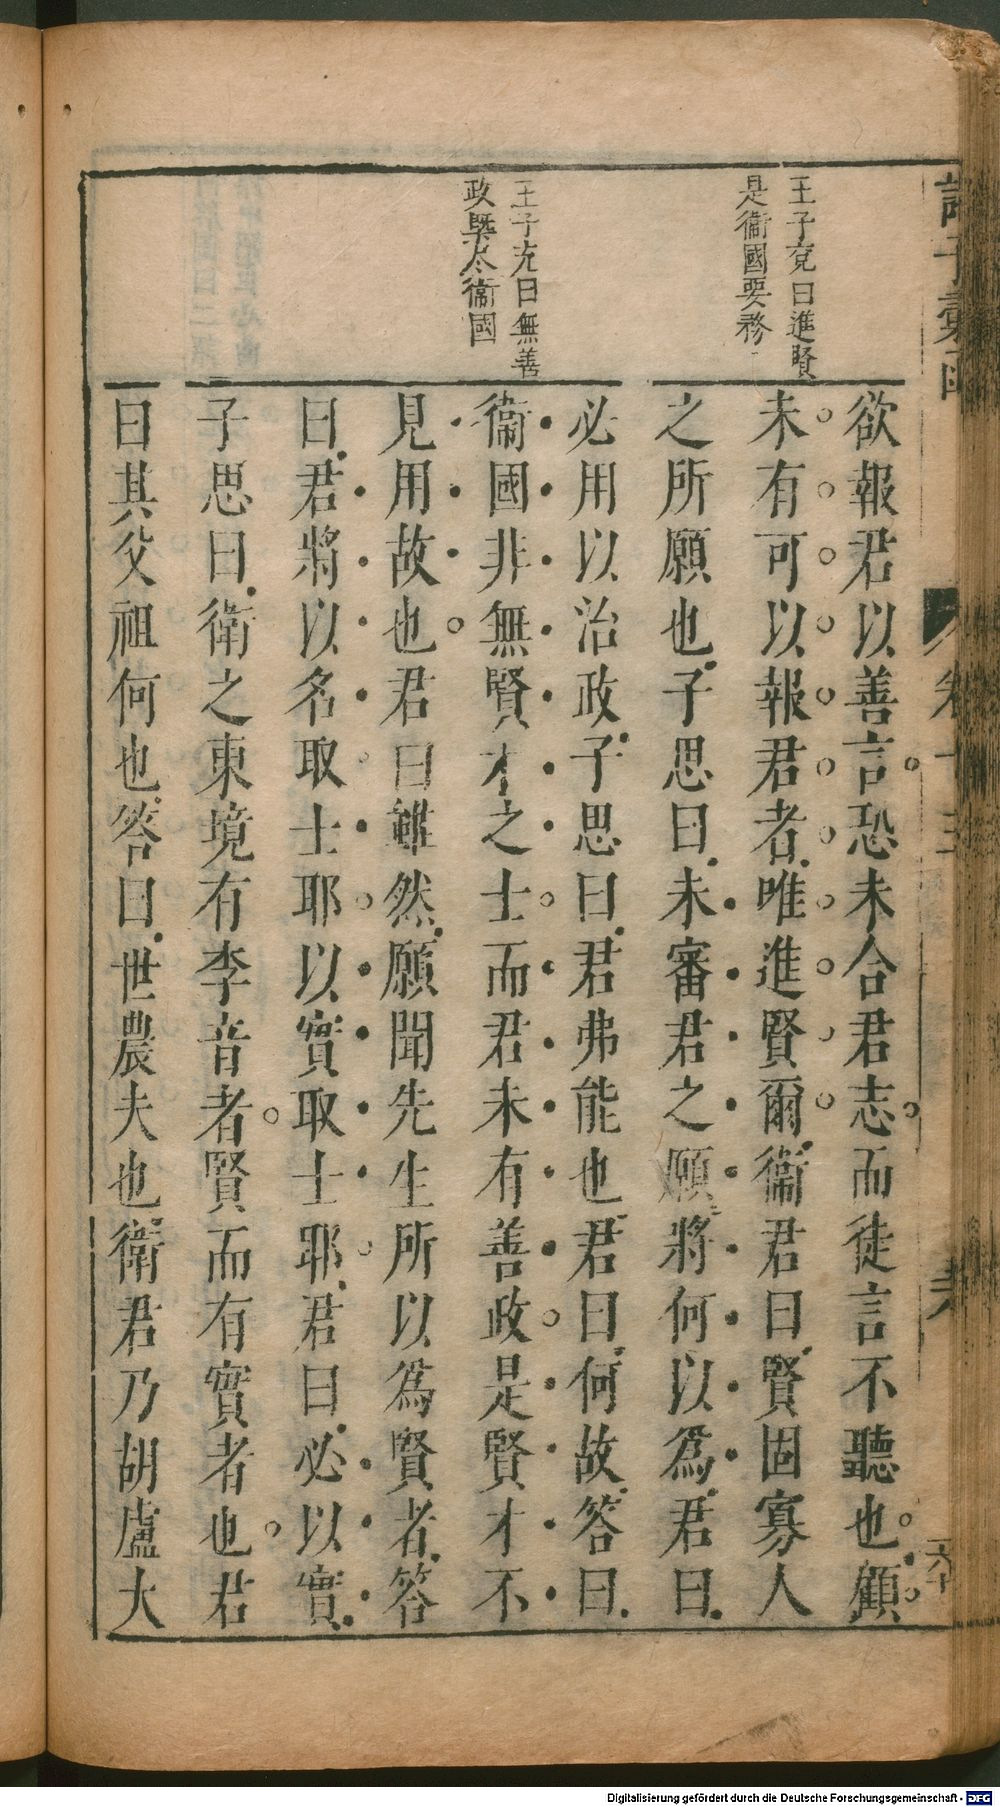 王子充曰進賢
是衞國要務
王子充曰無善
政槩尽衞國
欲報君以善言恐未合君志而徒言不聽也顧
未有可以報君者唯進賢爾衞君曰賢固寡人
之所願也子思曰未審君之願將何以爲君曰
必用以治政子思曰君弗能也君曰何故答曰
衞國非無賢才之士而君未有善政是賢才不
見用故也君曰雖然願聞先生所以爲賢者答
曰君將以名取士耶以實取士耶君曰必以實
子思曰衞之東境有李音者賢而有實者也君
曰其父祖何也答曰世農夫也衞君乃胡盧大
六十
Digitalisierung gefördert durch die Deutsche Forschungsgemeinschaft - DFG